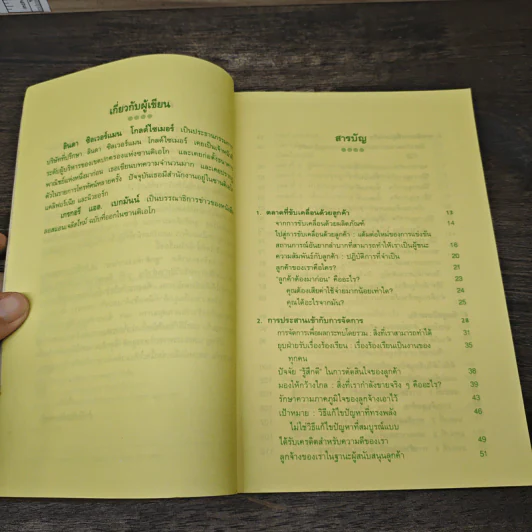 เกี่ยวกับผู้เขียน
ลินดา ซิลเวอร์แมน โกลด์ไซเมอร์ เป็นประธานกรรม
บริษัทที่ปรึกษา ลินดา ซิลเวอร์แมน โกลด์ไซเมอร์ เคยเป็นเจ้าหน้าที่
ระดับผู้บริหารของเขตปกครองแห่งซานดิเอโก และเคยก่อตั้งธนาคาร
พาณิชย์แห่งหนึ่งมาก่อน เธอเขียนบทความจำนวนมาก และเคยปรากฏ
ตัวในรายการโทรทัศน์หลายครั้ง ปัจจุบันเธอมีสำนักงานอยู่ในซานดิเอโก
แคลิฟอร์เนีย และนิวยอร์ก
เกรกอรี่ แอล. เบกมันน์ เป็นบรรณาธิการข่าวของหนังสือ
ลอสแองเจลิสไทม์ ฉบับที่ออกในซานดิเอโก
สารบัญ
1. ตลาดที่ขับเคลื่อนด้วยลูกค้า 13
จากการขับเคลื่อนด้วยผลิตภัณฑ์ 14
ไปสู่การขับเคลื่อนด้วยลูกค้า : แต้มต่อใหม่ของการแข่งขัน
สถานการณ์อันยากลำบากที่สามารถทำให้เราเป็นผู้ชนะ 18
ความสัมพันธ์กับลูกค้า : ปฏิบัติการที่จำเป็น 20
ลูกค้าของเราคือใคร? 21
"ลูกค้าต้องมาก่อน" คืออะไร? 23
คุณต้องเสียค่าใช้จ่ายมากน้อยเท่าใด? 24
คุณได้อะไรจากมัน? 25
2. การประสานเข้ากับการจัดการ 28
การจัดการเพื่อผลกระทบโดยรวม : สิ่งที่เราสามารถทำได้ 31
ยุบฝ่ายรับเรื่องร้องเรียน : เรื่องร้องเรียนเป็นงานของ 35
ทุกคน
ปัจจัย "รู้สึกดี" ในการตัดสินใจของลูกค้า 38
มองให้กว้างไกล : สิ่งที่เรากำลังขายจริง ๆ คืออะไร? 39
รักษาความภาคภูมิใจของลูกจ้างเอาไว้ 43
เป้าหมาย : วิธีแก้ไขปัญหาที่ทรงพลัง 46
ไม่ใช่วิธีแก้ไขปัญหาที่สมบูรณ์แบบ
ได้รับเครดิตสำหรับความดีของเรา 49
ลูกจ้างของเราในฐานะผู้สนับสนุนลูกค้า 51